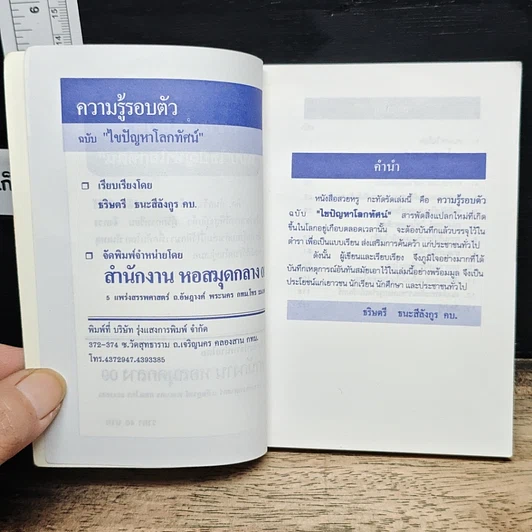 ความรู้รอบตัว
ฉบับ "ไขปัญหาโลกทัศน์"
❐ เรียบเรียงโดย
ธริษตรี ธนะสีลังกูร คบ.
❐ จัดพิมพ์จำหน่ายโดย
สำนักงาน หอสมุดกลาง 0
5 แพร่งสรรพศาสตร์ ถ.อัษฎางค์ พระนคร กทม. โทร
พิมพ์ที่ บริษัท รุ่งแสงการพิมพ์ จำกัด
372-374 ซ.วัดสุทธาราม ถ.เจริญนคร คลองสาน กทม.
โทร.4372947.4393385
คำนำ
หนังสือสวยหรู กะทัดรัดเล่มนี้ คือ ความรู้รอบตัว
ฉบับ "ไขปัญหาโลกทัศน์" สารพัดสิ่งแปลกใหม่ที่เกิด
ขึ้นในโลกอยู่เกือบตลอดเวลานั้น จะต้องบันทึกแล้วบรรจุไว้ใน
ตำรา เพื่อเป็นแบบเรียน ส่งเสริมการค้นคว้า แก่ประชาชนทั่วไป
ดังนั้น ผู้เขียนและเรียบเรียง จึงภูมิใจอย่างมากที่ได้
บันทึกเหตุการณ์อันทันสมัยเอาไว้ในเล่มนี้อย่างพร้อมมูล จึงเป็น
ประโยชน์แก่เยาวชน นักเรียน นักศึกษา และประชาชนทั่วไป
ธริษตรี ธนะสีลังกูร คบ.
6
14
15